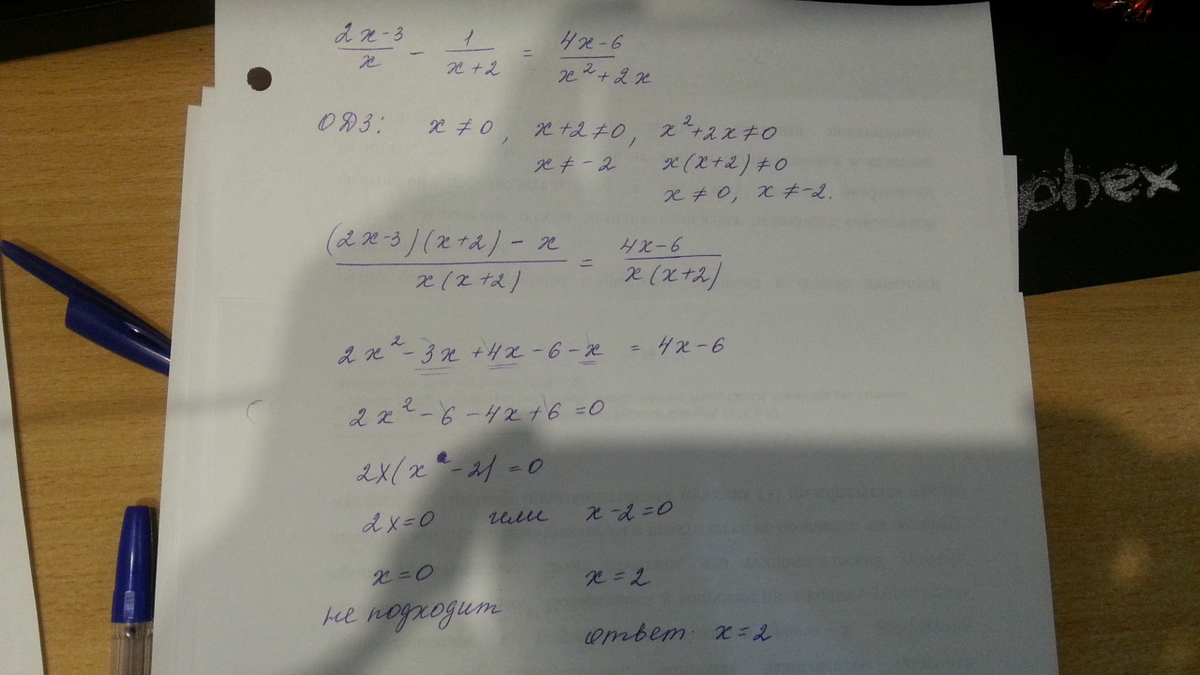 (2x-3)/x - 1/(x+2) = (4x-6)/(x²+2x)
ОДЗ: x≠0, x+2≠0, x²+2x≠0
x≠-2 x(x+2)≠0
x≠0, x≠-2.
((2x-3)(x+2)-x)/(x(x+2)) = (4x-6)/(x(x+2))
2x²-3x+4x-6-x = 4x-6
2x²-6-4x+6=0
2x(x-2)=0
2x=0 или x-2=0
x=0 x=2
не подходит
ответ. x=2
phex